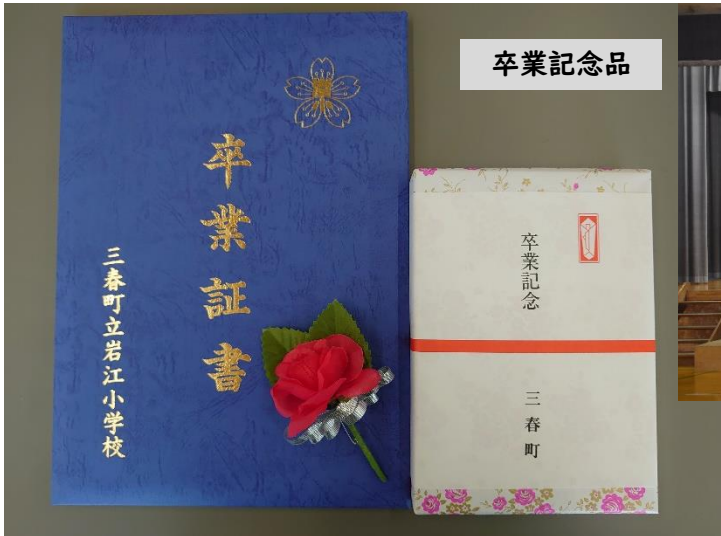 卒業記念品
卒業証書
三春町立岩江小学校
卒業記念
三春町